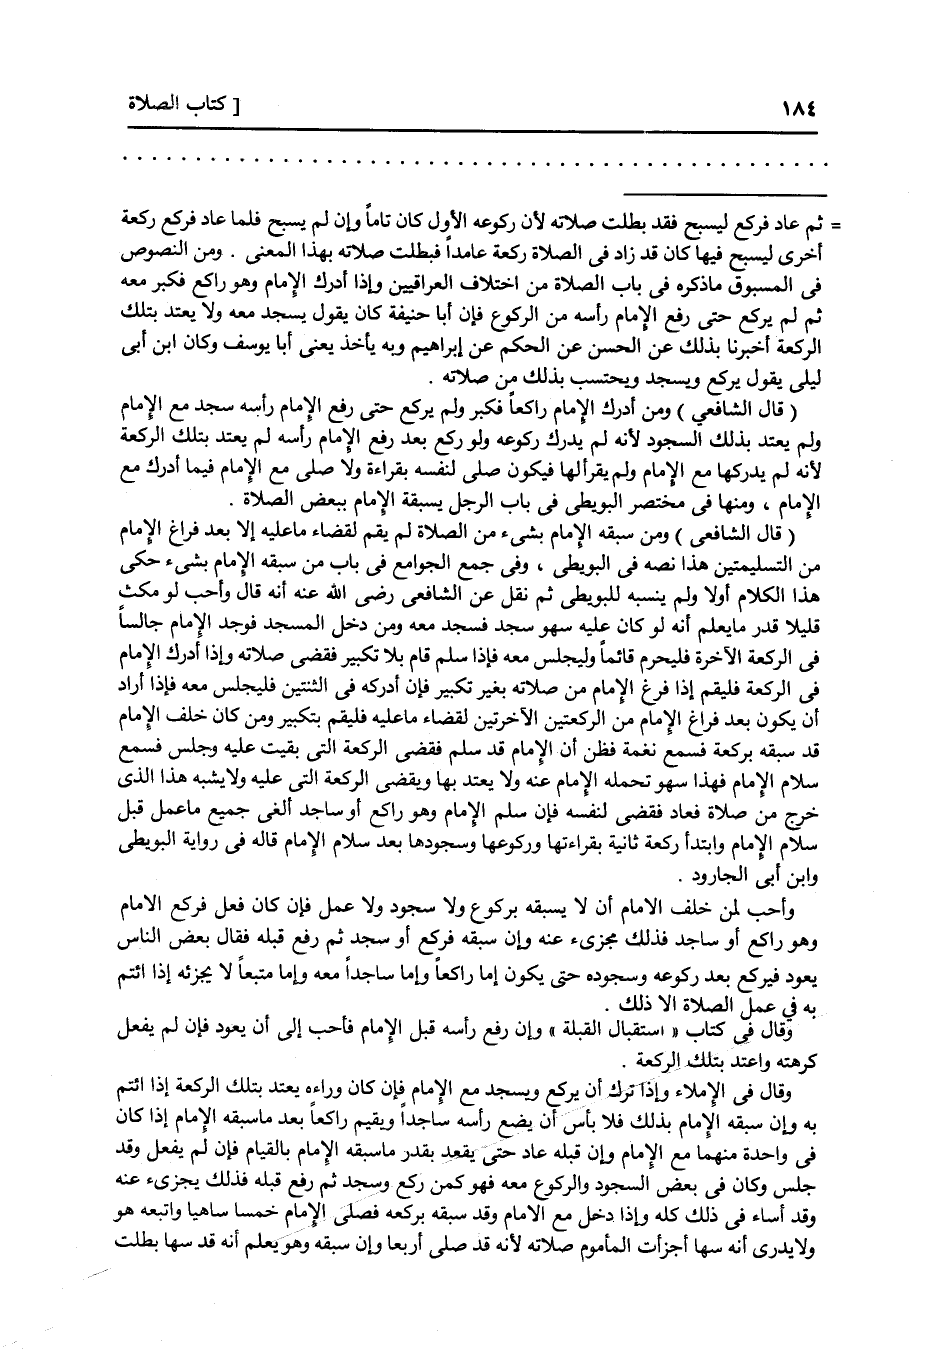 ١٨٤
[ كتاب الصلاة
= ثم عاد فركع ليسبح فقد بطلت صلاته لأن ركوعه الأول كان تاماً وإن لم يسبح فلما عاد فركع ركعة
أخرى ليسبح فيها كان قد زاد فى الصلاة ركعة عامداً فبطلت صلاته بهذا المعنى . ومن النصوص
فى المسبوق ماذكره فى باب الصلاة من اختلاف العراقيين وإذا أدرك الإمام وهو راكع فكبر معه
ثم لم يركع حتى رفع الإمام رأسه من الركوع فإن أبا حنيفة كان يقول يسجد معه ولا يعتد بتلك
الركعة أخبرنا بذلك عن الحسن عن الحكم عن إبراهيم وبه يأخذ يعنى أبا يوسف وكان ابن أبى
ليلى يقول يركع ويسجد ويحتسب بذلك من صلاته .
( قال الشافعي ) ومن أدرك الإمام راكعاً فكبر ولم يركع حتى رفع الإمام رأسه سجد مع الإمام
ولم يعتد بذلك السجود لأنه لم يدرك ركوعه ولو ركع بعد رفع الإمام رأسه لم يعتد بتلك الركعة
لأنه لم يدركها مع الإمام ولم يقرأ لها فيكون صلى لنفسه بقراءة ولا صلى مع الإمام فيما أدرك مع
الإمام ، ومنها فى مختصر البويطى فى باب الرجل يسبقة الإمام ببعض الصلاة .
( قال الشافعى ) ومن سبقه الإمام بشىء من الصلاة لم يقم لقضاء ماعليه إلا بعد فراغ الإمام
من التسليمتين هذا نصه فى البويطى ، وفى جمع الجوامع فى باب من سبقه الإمام بشىء حكى
هذا الكلام أولا ولم ينسبه للبويطى ثم نقل عن الشافعى رضى الله عنه أنه قال وأحب لو مكث
قليلا قدر مايعلم أنه لو كان عليه سهو سجد فسجد معه ومن دخل المسجد فوجد الإمام جالساً
فى الركعة الآخرة فليحرم قائماً وليجلس معه فإذا سلم قام بلا تكبير فقضى صلاته وإذا أدرك الإمام
فى الركعة فليقم إذا فرغ الإمام من صلاته بغير تكبير فإن أدركه فى الثنتين فليجلس معه فإذا أراد
أن يكون بعد فراغ الإمام من الركعتين الآخرتين لقضاء ماعليه فليقم بتكبير ومن كان خلف الإمام
قد سبقه بركعة فسمع نغمة فظن أن الإمام قد سلم فقضى الركعة التى بقيت عليه وجلس فسمع
سلام الإمام فهذا سهو تحمله الإمام عنه ولا يعتد بها ويقضى الركعة التى عليه ولايشبه هذا الذى
خرج من صلاة فعاد فقضى لنفسه فإن سلم الإمام وهو راكع أو ساجد ألغى جميع ماعمل قبل
سلام الإمام وابتدأ ركعة ثانية بقراءتها وركوعها وسجودها بعد سلام الإمام قاله فى رواية البويطى
وابن أبى الجارود .
وأحب لمن خلف الامام أن لا يسبقه بركوع ولا سجود ولا عمل فإن كان فعل فركع الامام
وهو راكع أو ساجد فذلك مجزىء عنه وإن سبقه فركع أو سجد ثم رفع قبله فقال بعض الناس
يعود فيركع بعد ركوعه وسجوده حتى يكون إما راكعاً وإما ساجداً معه وإما متبعاً لا يجزئه إذا ائتم
به في عمل الصلاة الا ذلك .
وقال فى كتاب « استقبال القبلة » وإن رفع رأسه قبل الإمام فأحب إلى أن يعود فإن لم يفعل
كرهته واعتد بتلك الركعة .
وقال فى الإملاء وإذا ترك أن يركع ويسجد مع الإمام فإن كان وراءه يعتد بتلك الركعة إذا ائتم
به وإن سبقه الإمام بذلك فلا بأس أن يضع رأسه ساجداً ويقيم راكعاً بعد ماسبقه الإمام إذا كان
فى واحدة منهما مع الإمام وإن قبله عاد حتى يقعد بقدر ماسبقه الإمام بالقيام فإن لم يفعل وقد
جلس وكان فى بعض السجود والركوع معه فهو كمن ركع وسجد ثم رفع قبله فذلك يجزىء عنه
وقد أساء فى ذلك كله وإذا دخل مع الامام وقد سبقه بركعه فصلى الإمام خمسا ساهيا واتبعه هو
ولايدرى أنه سها أجزأت المأموم صلاته لأنه قد صلى أربعا وإن سبقه وهو يعلم أنه قد سها بطلت